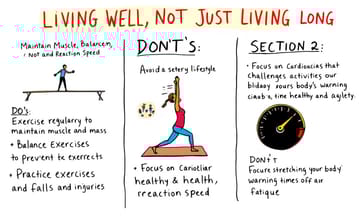 LIVING WELL, NOT JUST LIVING LONG
Maintain Muscle, Balancem,
Not and Reaction Speed
DO's:
Exercise regularry to
maintain muscle and mass
• Balance Exercises
to prevent te exerrects
• Practice exercises
and falls and injuries
DON'T's:
Avoid a setery lifestyle
• Focus on Carietiar
healthy & health,
rreaction speed
SECTION 2:
• Focus on Cardioacias that
challenges activities our
blidaoy xours body's warning
healthy and agilety.
DON'T
Focure stretching your body'
warning times off air
Fatigue